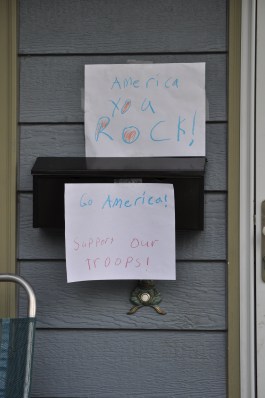 America
You
ROCK!
Go America!
Support Our
TROOPS!